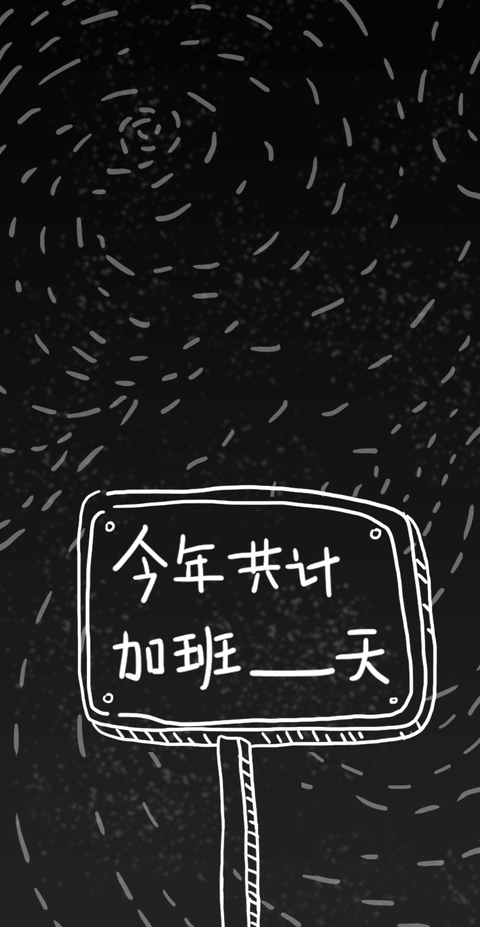 今年共计
加班___天